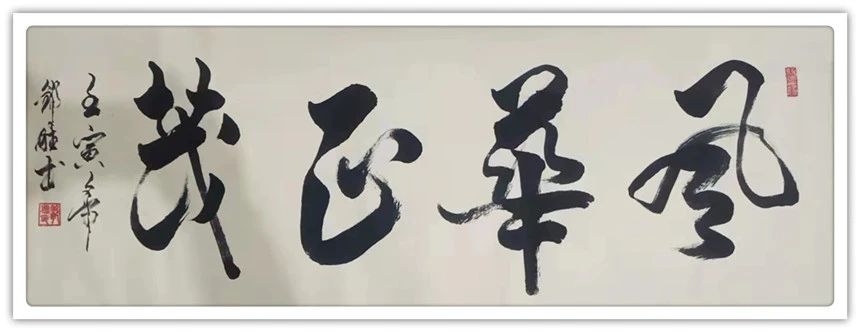 風華正茂
壬寅年